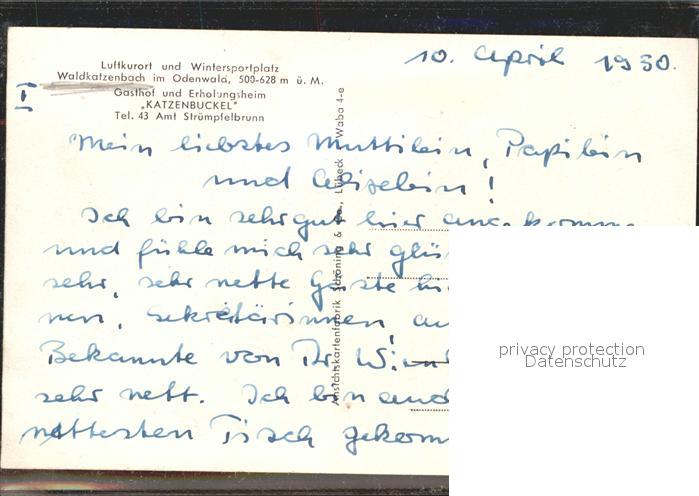 10. April 1950.
Luftkurort und Wintersportplatz
Waldkatzenbach im Odenwald, 500-628 m ü. M.
Gasthof und Erholungsheim
„KATZENBUCKEL"
Tel. 43 Amt Strümpfelbrunn
I
Mein liebstes Muttilein, Papilein
und Liselein!
Ich bin sehr gut hier angekomme
und fühle mich sehr glü
sehr, sehr nette Gäste hi
nen, Sekretärinnen, au
Bekannte von Dr. W
sehr nett. Ich bin and
nettesten Tisch gekom
Ansichtskartenfabrik Schöning & Co., Lübeck Waba 4-e
privacy protection
Datenschutz